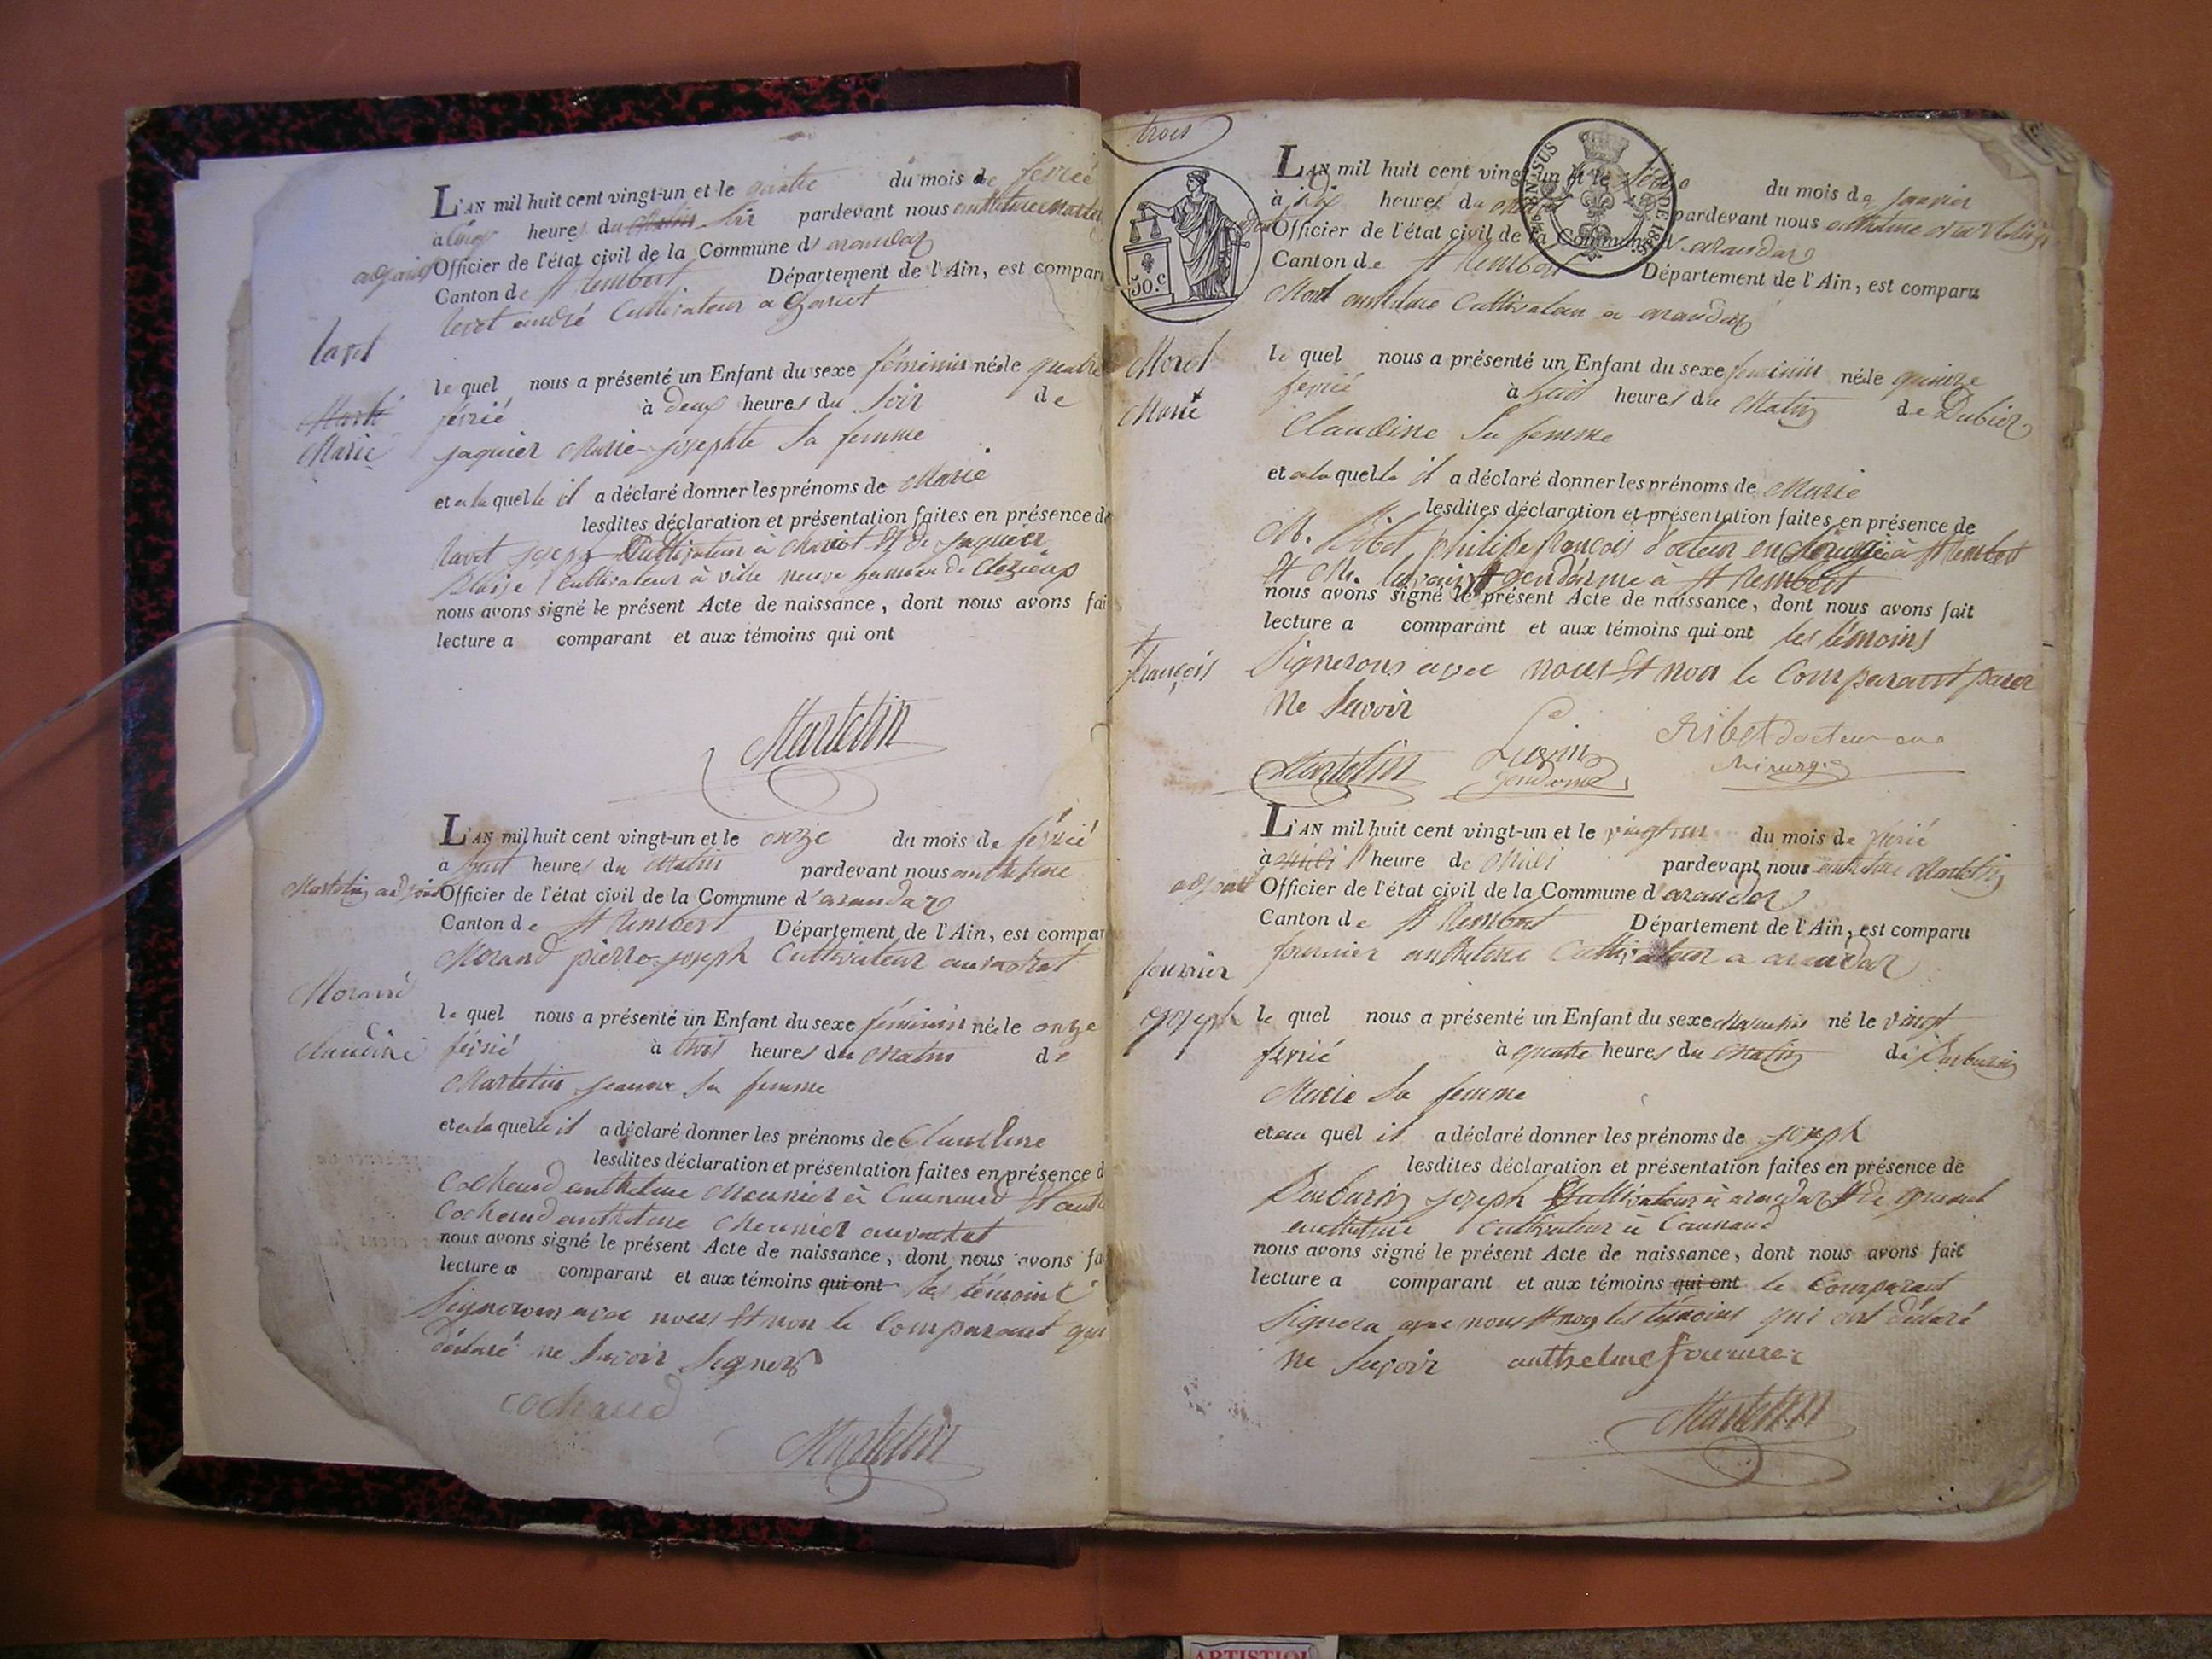 L'AN mil huit cent vingt-un et le quatre du mois de févrié
à cinq heures du matin soir pardevant nous anthelme Martelin
adjoint Officier de l'état civil de la Commune d'arandaz
Canton de St Rembert Département de l'Ain, est compar
André Cultivateur a
le quel nous a présenté un Enfant du sexe féminin née le quatre
févrié à deux heures du soir de
Marie
jaquier Marie-josephte sa femme
et a la quelle il a déclaré donner les prénoms de Marie
lesdites déclaration et présentation faites en présence de
joseph Cultivateur à Et de jaquier
Blaise Cultivateur à ville neuve hameau de
nous avons signé le présent Acte de naissance, dont nous avons fai
lecture a comparant et aux témoins qui ont
Martelin
L'AN mil huit cent vingt-un et le onze du mois de févrié
a huit heures du Matin pardevant nous anthelme
Martelin adjoint Officier de l'état civil de la Commune d'arandaz
Canton de St Rembert Département de l'Ain, est compar
Morand pierre-joseph Cultivateur
Morand
le quel nous a présenté un Enfant du sexe féminin née le onze
Claudine févrié à trois heures du Matin de
Martelin jeanne sa femme
et a la quelle il a déclaré donner les prénoms de Claudine
lesdites déclaration et présentation faites en présence d
Cochaud anthelme Meunier à Et
Cochaud anthelme Meunier
nous avons signé le présent Acte de naissance, dont nous avons fa
lecture a comparant et aux témoins qui ont les témoins
signerons avec nous Et non le Comparant qui
déclaré ne savoir signer
cochaud
Martelin
trois
L'AN mil huit cent vingt-un et le du mois de janvier
à dix heures du matin pardevant nous anthelme Martelin
adjoint Officier de l'état civil de la Commune d'arandaz
50.C
Canton de St Rembert Département de l'Ain, est comparu
Morel anthelme Cultivateur a arandaz
Morel le quel nous a présenté un Enfant du sexe féminin née le quinze
Marie févrié à huit heures du Matin de Dubiez
Claudine sa femme
et a la quelle il a déclaré donner les prénoms de Marie
lesdites déclaration et présentation faites en présence de
M. Ribet philipe françois docteur en chirurgie à St Rembert
Et M. gendarme à St Rembert
nous avons signé le présent Acte de naissance, dont nous avons fait
lecture a comparant et aux témoins qui ont les témoins
† françois signerons avec nous Et non le Comparant pour
ne savoir
Martelin gendarme Ribet docteur en
chirurgie
L'AN mil huit cent vingt-un et le vingt un du mois de févrié
à midi 1 heure de Midi pardevant nous anthelme Martelin
adjoint Officier de l'état civil de la Commune d'arandaz
Canton de St Rembert Département de l'Ain, est comparu
fournier anthelme Cultivateur a arandaz
fournier
joseph le quel nous a présenté un Enfant du sexe Masculin né le vingt
févrié à quatre heures du Matin de Barbarin
Marie sa femme
et au quel il a déclaré donner les prénoms de joseph
lesdites déclaration et présentation faites en présence de
Barbarin joseph Cultivateur à arandaz Et de
anthelme Cultivateur à
nous avons signé le présent Acte de naissance, dont nous avons fait
lecture a comparant et aux témoins qui ont le Comparant
signera avec nous Et non les témoins qui ont déclaré
ne savoir anthelme fournier
Martelin